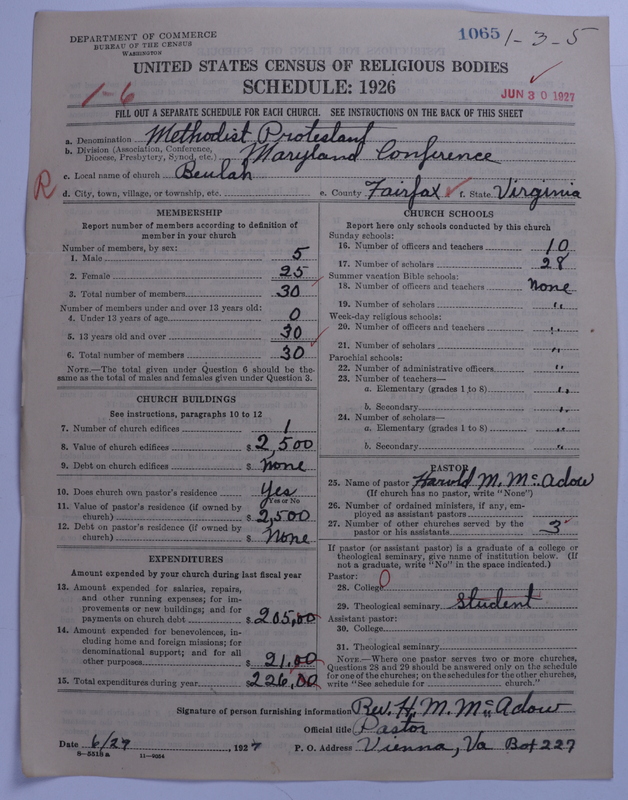 DEPARTMENT OF COMMERCE
BUREAU OF THE CENSUS
WASHINGTON
1065 1-3-5
UNITED STATES CENSUS OF RELIGIOUS BODIES
SCHEDULE: 1926
1-6
JUN 30 1927
FILL OUT A SEPARATE SCHEDULE FOR EACH CHURCH. SEE INSTRUCTIONS ON THE BACK OF THIS SHEET
a. Denomination Methodist Protestant
b. Division (Association, Conference, Diocese, Presbytery, Synod, etc.) Maryland Conference
c. Local name of church Beulah
R
d. City, town, village, or township, etc. e. County Fairfax f. State Virginia
MEMBERSHIP
Report number of members according to definition of
member in your church
Number of members, by sex:
1. Male 5
2. Female 25
3. Total number of members 30
Number of members under and over 13 years old:
4. Under 13 years of age 0
5. 13 years old and over 30
6. Total number of members 30
NOTE.—The total given under Question 6 should be the
same as the total of males and females given under Question 3.
CHURCH BUILDINGS
See instructions, paragraphs 10 to 12
7. Number of church edifices 1
8. Value of church edifices $ 2,500
9. Debt on church edifices $ None
10. Does church own pastor's residence Yes
Yes or No
11. Value of pastor's residence (if owned by
church) $ 2,500
12. Debt on pastor's residence (if owned by
church) $ None
EXPENDITURES
Amount expended by your church during last fiscal year
13. Amount expended for salaries, repairs,
and other running expenses; for im-
provements or new buildings; and for
payments on church debt $ 205,00
14. Amount expended for benevolences, in-
cluding home and foreign missions; for
denominational support; and for all
other purposes $ 21.00
15. Total expenditures during year $ 226,00
CHURCH SCHOOLS
Report here only schools conducted by this church
Sunday schools:
16. Number of officers and teachers 10
17. Number of scholars 28
Summer vacation Bible schools:
18. Number of officers and teachers None
19. Number of scholars "
Week-day religious schools:
20. Number of officers and teachers "
21. Number of scholars "
Parochial schools:
22. Number of administrative officers "
23. Number of teachers—
a. Elementary (grades 1 to 8) "
b. Secondary "
24. Number of scholars—
a. Elementary (grades 1 to 8) "
b. Secondary "
PASTOR
25. Name of pastor Harold M. McAdow
(If church has no pastor, write "None")
26. Number of ordained ministers, if any, em-
ployed as assistant pastors
27. Number of other churches served by the
pastor or his assistants 3
If pastor (or assistant pastor) is a graduate of a college or
theological seminary, give name of institution below. (If
not a graduate, write "No" in the space indicated.)
Pastor:
28. College 0
29. Theological seminary Student
Assistant pastor:
30. College
31. Theological seminary
NOTE.—Where one pastor serves two or more churches,
Questions 28 and 29 should be answered only on the schedule
for one of the churches; on the schedules for the other churches,
write "See schedule for church."
Signature of person furnishing information Rev. H. M. McAdow
Official title Pastor
Date 6/29, 1927 P. O. Address Vienna, Va Box 227
8-5518 a 11-9054